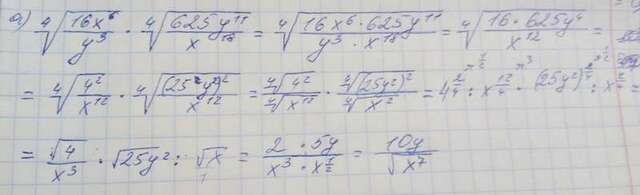 а) ⁴√(16x⁶/y³) · ⁴√(625y¹¹/x¹⁸) = ⁴√(16x⁶ · 625y¹¹/y³ · x¹⁸) = ⁴√(16 · 625y⁴/x¹²) =
= ⁴√(4²/x¹²) · ⁴√((25²y²)²/x¹²) = ⁴√4²/⁴√x¹² · ⁴√(25y²)²/⁴√x² = 4^(2/4) : x^(12/4) · (25y²) : x
= √4/x³ · √25y² : √x = 2 · 5y/x³ · x^(1/2) = 10y/√x⁷